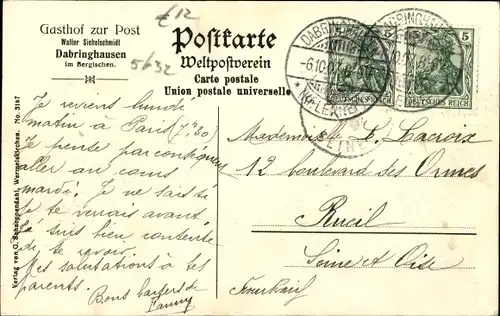 £12
5632
Gasthof zur Post
Walter Sichelschmidt
Dabringhausen
im Bergischen.
Postkarte
Weltpostverein
Carte postale
Union postale universelle
DABRINGHAUSEN
-6.10.07
5
5
DEUTSCHES REICH
DEUTSCHES REICH
Verlag von G. Schleppendahl, Wermelskirchen. No. 3167
Je reviens lundi
matin à Paris (7,20)
Je pense par conséquent
aller au cours
mardi. Je ne sais si
je te verrais avant
Je suis bien contente
de te revoir.
Mes salutations à tes
parents.
Bons baisers de
Fanny
Mademoiselle L. Lacroix
12 boulevard des Ormes
Rueil
Seine et Oise
Frankreich